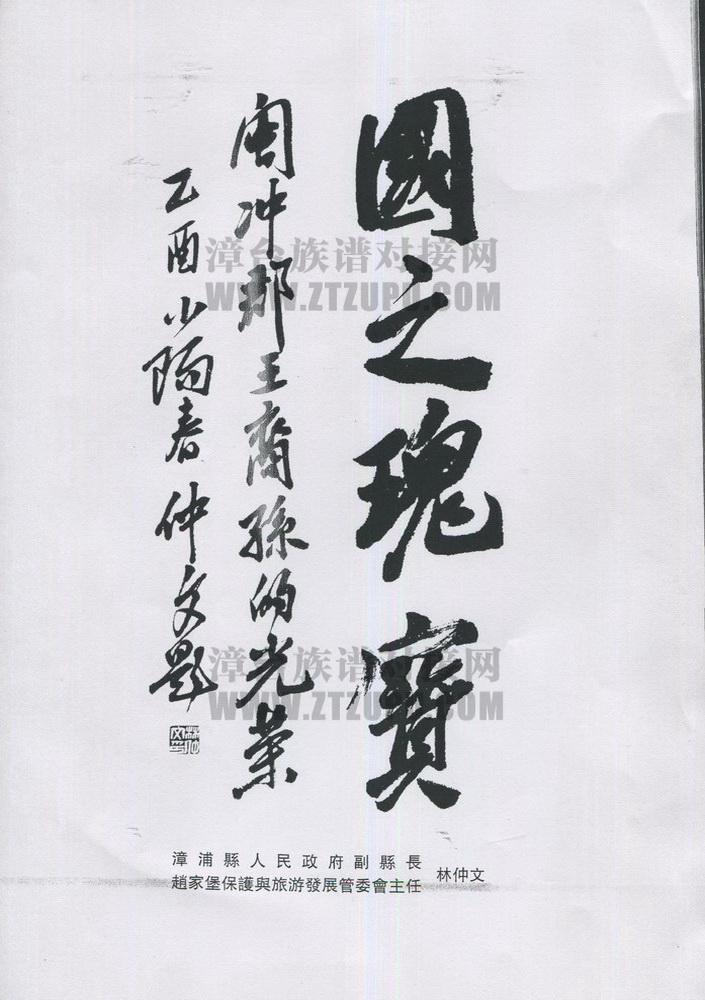 國之瑰寶
闽冲郡王裔孫的光業
乙酉小陽春仲文題
漳浦縣人民政府副縣長
趙家堡保護與旅游發展管委會主任
林仲文
漳台族谱对接网
WWW.ZTZUPU.COM
漳台族谱对接网
WWW.ZTZUPU.COM